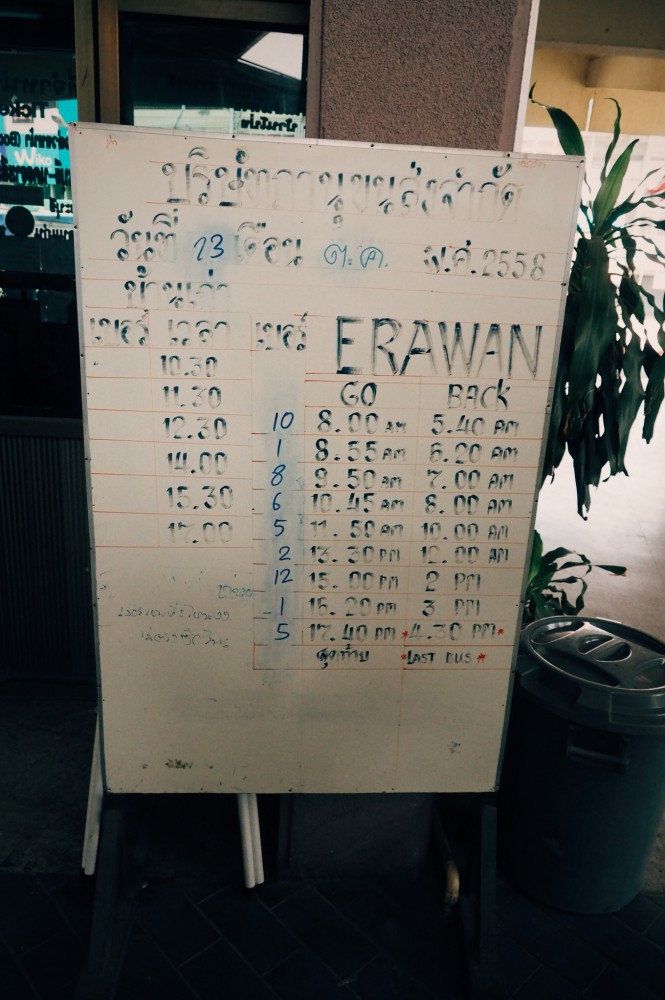 บริษัทกาญขนส่งจำกัด
วันที่ 23 เดือน ต.ค. พ.ศ. 2558
บ้านเก่า
เบอร์ เวลา เบอร์ ERAWAN
10.30 GO BACK
11.30
12.30 10 8.00 AM 5.40 AM
1 8.55 AM 6.20 AM
14.00 8 9.50 AM 7.00 AM
15.30 6 10.45 AM 8.00 AM
17.00 5 11.50 AM 10.00 AM
2 13.30 PM 12.00 AM
12 15.00 PM 2 PM
1 16.20 PM 3 PM
5 17.40 PM *4.30 PM*
สุดท้าย *LAST BUS*
Wiko